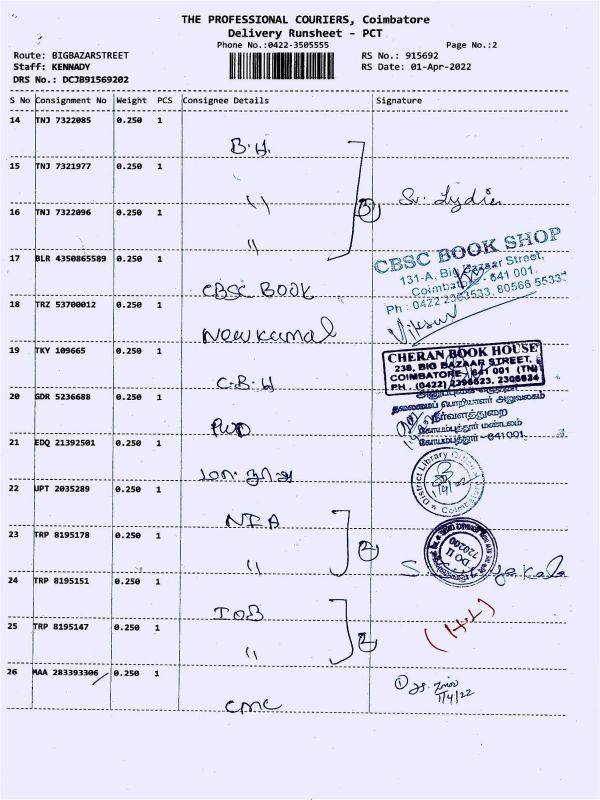 THE PROFESSIONAL COURIERS, Coimbatore
Delivery Runsheet - PCT
Phone No.:0422-3505555
Page No.:2
Route: BIGBAZARSTREET
RS No.: 915692
Staff: KENNADY
RS Date: 01-Apr-2022
DRS No.: DCJB91569202
S No Consignment No Weight PCS Consignee Details Signature
14 TNJ 7322085 0.250 1
B.H.
15 TNJ 7321977 0.250 1
"
3
Sr. Lydia
16 TNJ 7322096 0.250 1
"
17 BLR 4350865589 0.250 1
CBSC BOOK
CBSC BOOK SHOP
131-A, Big Bazaar Street,
Coimbatore 641 001.
Ph : 0422 80566 5533
18 TRZ 53700012 0.250 1
New kamal
19 TKY 109665 0.250 1
C.B.H
CHERAN BOOK HOUSE
238, BIG BAZAAR STREET,
COIMBATORE 641 001 (TN)
PH. (0422) 2396623, 2306624
20 GDR 5236688 0.250 1
PWD
தலைமைப் பொறியாளர் அலுவலகம்
நீர்வளத்துறை
கோயம்புத்தூர் மண்டலம்
கோயம்புத்தூர் - 641001
21 EDQ 21392501 0.250 1
District Library
Coimbatore
1/4/22
22 UPT 2035289 0.250 1
NIA
23 TRP 8195178 0.250 1
"
2
DO II
720200
24 TRP 8195151 0.250 1
IOB
25 TRP 8195147 0.250 1
"
2
26 MAA 283393306 0.250 1
CMC
1
1/4/22